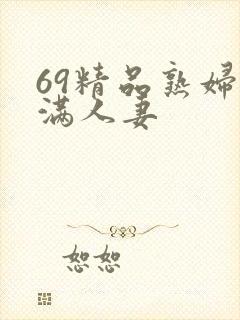 69精品熟婦
满人妻
恕恕